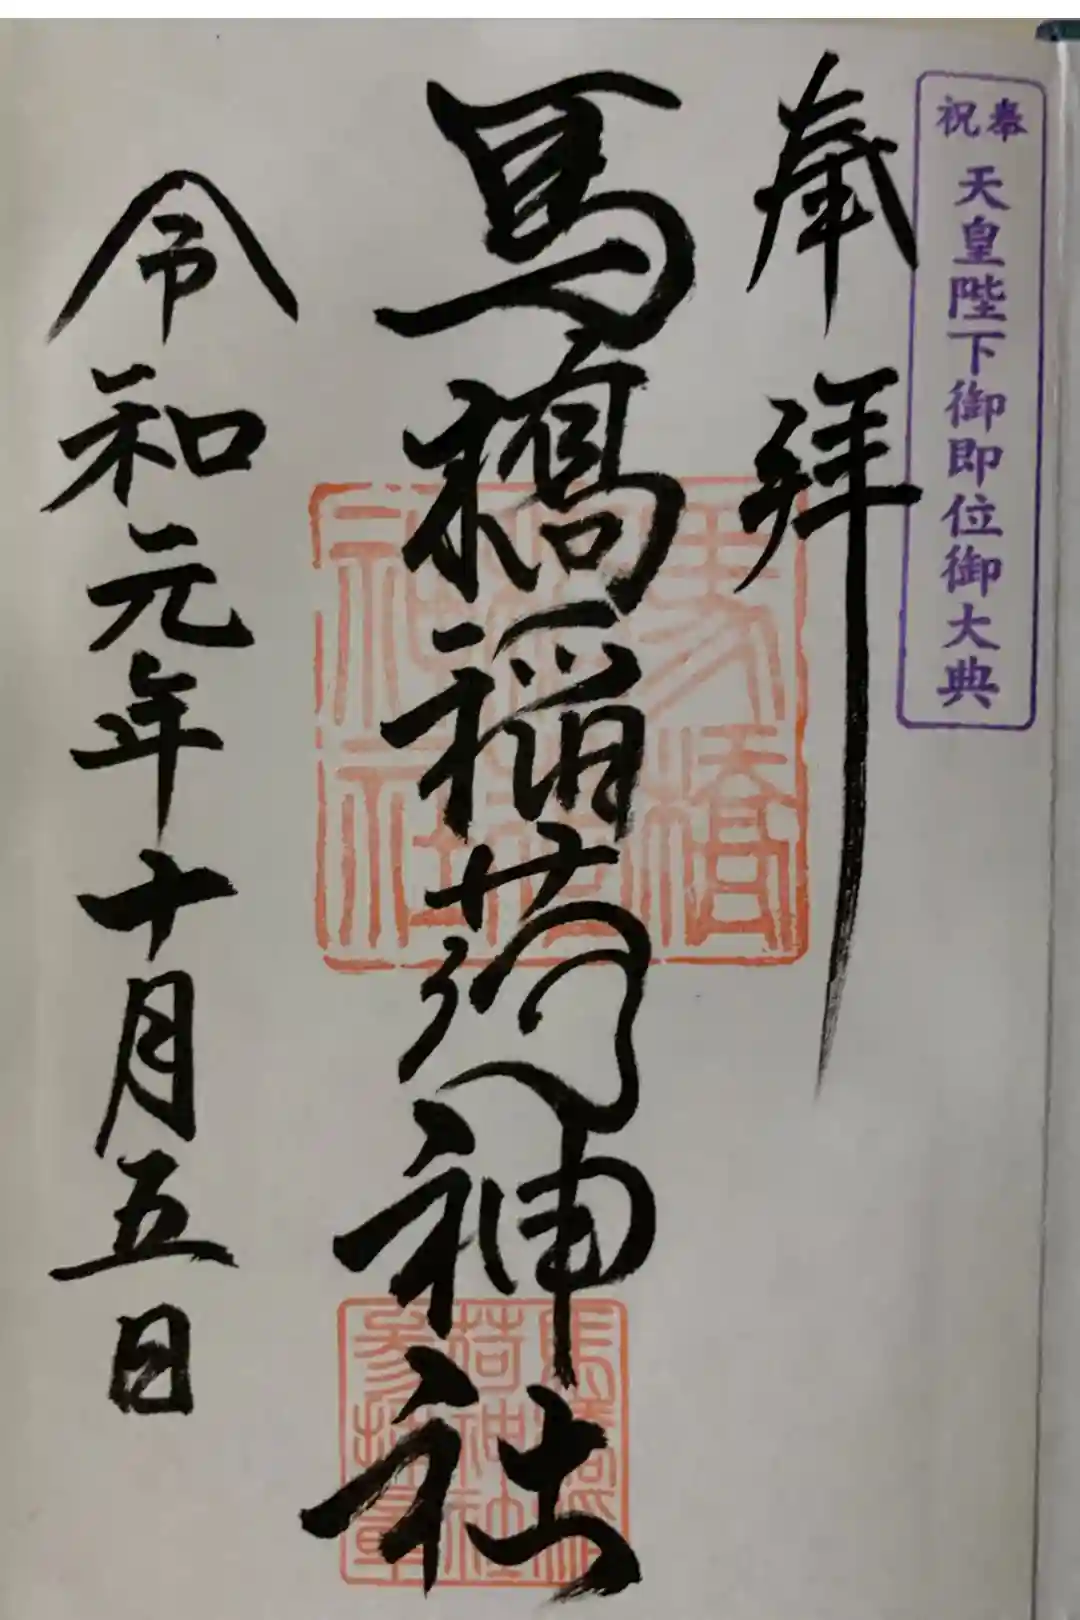 奉祝
天皇陛下御即位御大典
奉拝
馬橋稲荷神社
令和元年十月五日
馬橋
稲荷
神社
馬橋稲
荷神社
参拝章